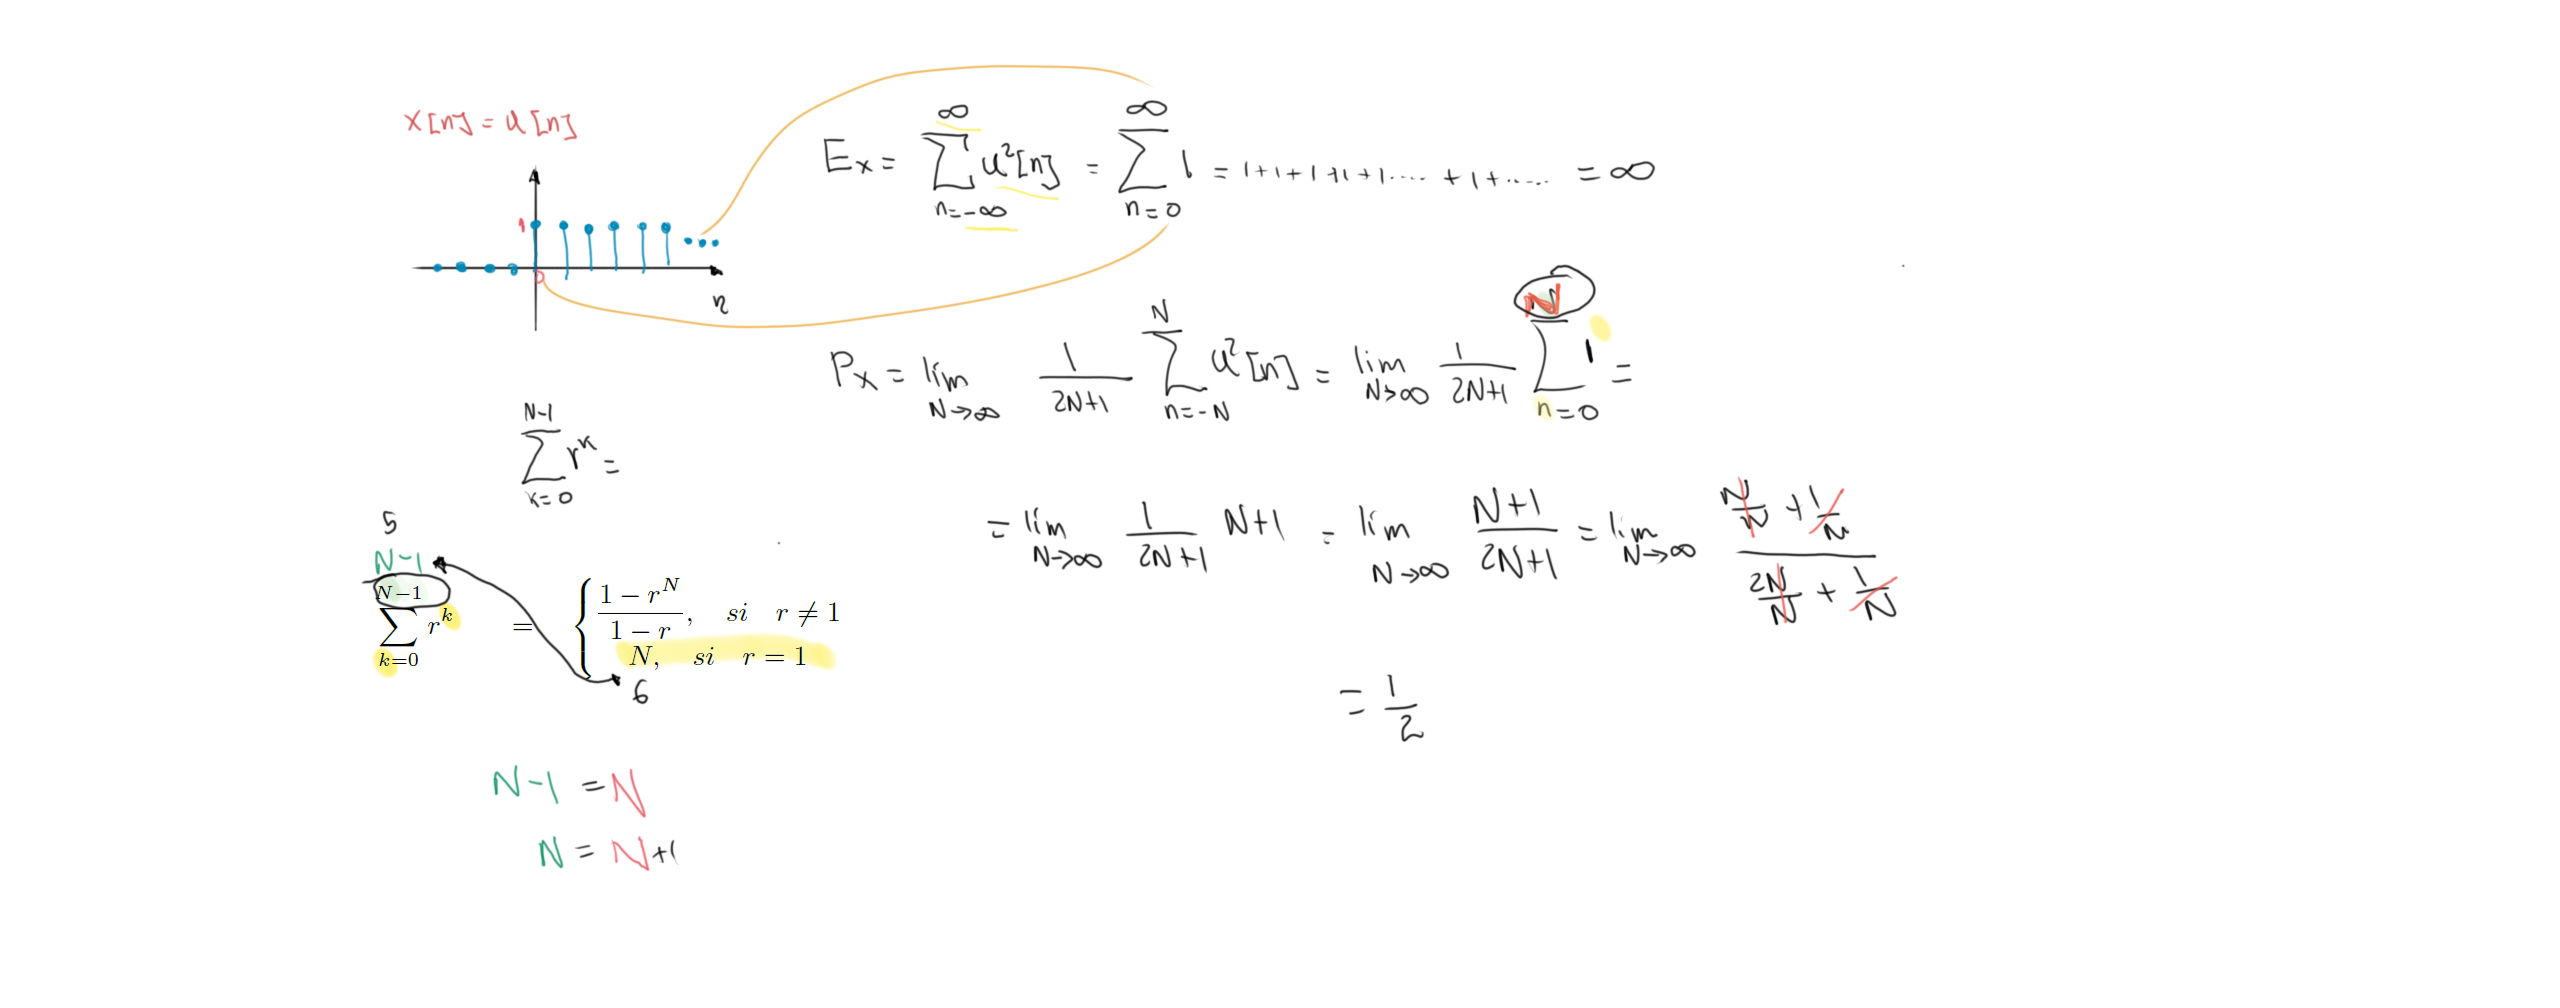 x[n] = u[n]
1
0
n
E_x = \sum_{n=-∞}^{∞} u²[n] = \sum_{n=0}^{∞} 1 = 1+1+1+1+1+1.... +1+..... = ∞
P_x = lim_{N→∞} \frac{1}{2N+1} \sum_{n=-N}^{N} u²[n] = lim_{N→∞} \frac{1}{2N+1} \sum_{n=0}^{N} 1 =
\sum_{k=0}^{N-1} r^k =
= lim_{N→∞} \frac{1}{2N+1} N+1 = lim_{N→∞} \frac{N+1}{2N+1} = lim_{N→∞} \frac{\frac{N}{N} + \frac{1}{N}}{\frac{2N}{N} + \frac{1}{N}}
= \frac{1}{2}
5
N-1
\sum_{k=0}^{N-1} r^k = { \frac{1-r^N}{1-r}, si r ≠ 1
N, si r = 1
6
N-1 = N
N = N+1